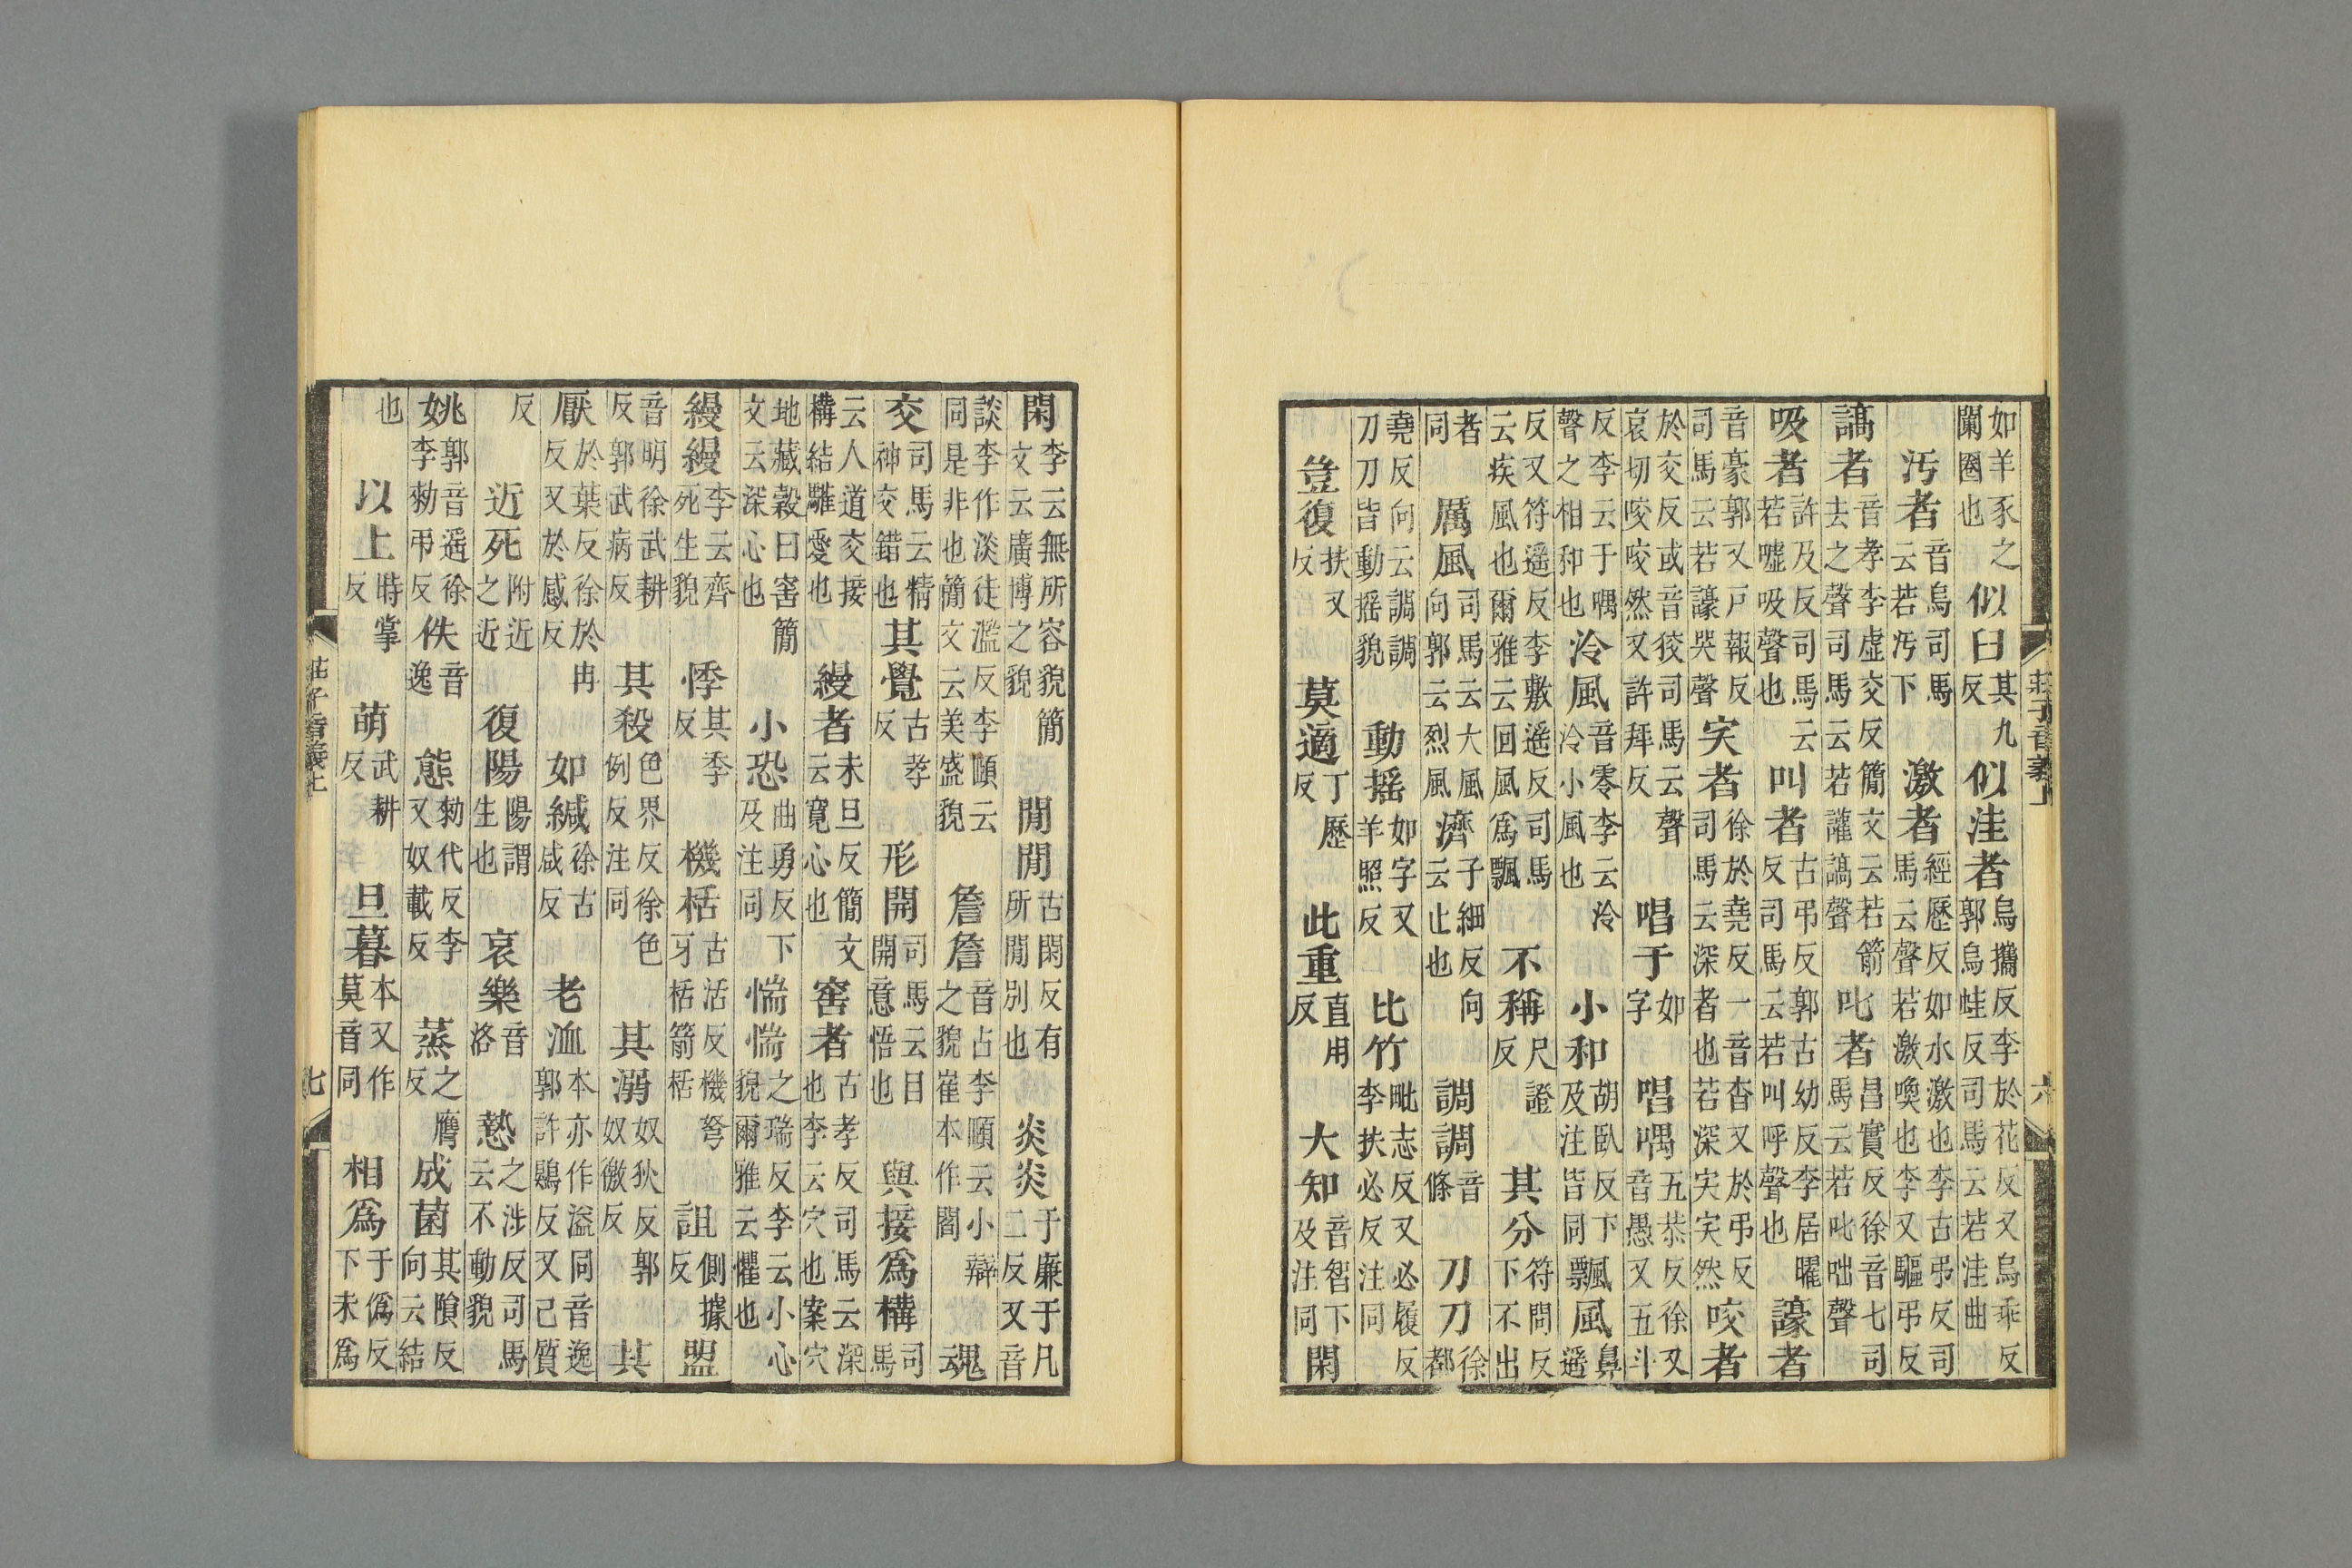 莊子音義上 六
如羊豕之闌圈也 似臼其九反 似洼者烏攜反李於花反又烏乖反郭烏蛙反司馬云若洼曲
汚者音烏司馬云若汚下 激者經歷反如水激也李古弔反司馬云聲若激喚也李又驅弔反
謞者音孝李虛交反簡文云若箭去之聲司馬云若讙謞聲 叱者昌實反徐音七司馬云若叱咄聲
吸者許及反司馬云若噓吸聲也 叫者古弔反郭古幼反李居曜反司馬云若叫呼聲也 譹者
音豪郭又戸報反司馬云若譹哭聲 宎者徐於堯反一音杳又於弔反司馬云深者也若深宎宎然 咬者
於交反或音狡司馬云聲哀切咬咬然又許拜反 唱于如字 唱喁五恭反徐又音愚又五斗
反李云于喁聲之相和也 泠風音零李云泠泠小風也 小和胡臥反下及注皆同 飄風鼻遥
反又符遥反李敷遥反司馬云疾風也爾雅云回風爲飄 不稱尺證反 其分符問反下不出
者同 厲風司馬云大風向郭云烈風 濟子細反向云止也 調調音條 刀刀徐都
堯反向云調調刀刀皆動摇貌 動摇如字又羊照反 比竹毗志反又必履反李扶必反注同
豈復扶又反 莫適丁歷反 此重直用反 大知音智下及注同 閑
閑李云無所容貌簡文云廣博之貌 閒閒古閑反有所閒別也 炎炎于廉于凡二反又音
談李作淡徒濫反李頤云同是非也簡文云美盛貌 詹詹音占李頤云小辯之貌崔本作閻 魂
交司馬云精神交錯也 其覺古孝反 形開司馬云目開意悟也 與接爲構司馬
云人道交接構結驩愛也 縵者未旦反簡文云寬心也 窖者古孝反司馬云深也李云穴也案穴
地藏穀曰窖簡文云深心也 小恐曲勇反下及注同 惴惴之瑞反李云小心貌爾雅云懼也
縵縵李云齊死生貌 悸其季反 機栝古活反機弩牙栝箭栝 詛側據反 盟
音明徐武耕反郭武病反 其殺色界反徐色例反注同 其溺奴狄反郭奴徼反 其
厭於葉反徐於冉反又於感反 如緘徐古咸反 老洫本亦作溢同音逸郭許鶪反又己質
反 近死附近之近 復陽陽謂生也 哀樂音洛 慹之涉反司馬云不動貌
姚郭音遥徐李勑弔反 佚音逸 態勑代反李又奴載反 蒸之膺反 成菌其隕反向云結
也 以上時掌反 萌武耕反 旦暮本又作莫音同 相爲于僞反下未爲
莊子音義上 七